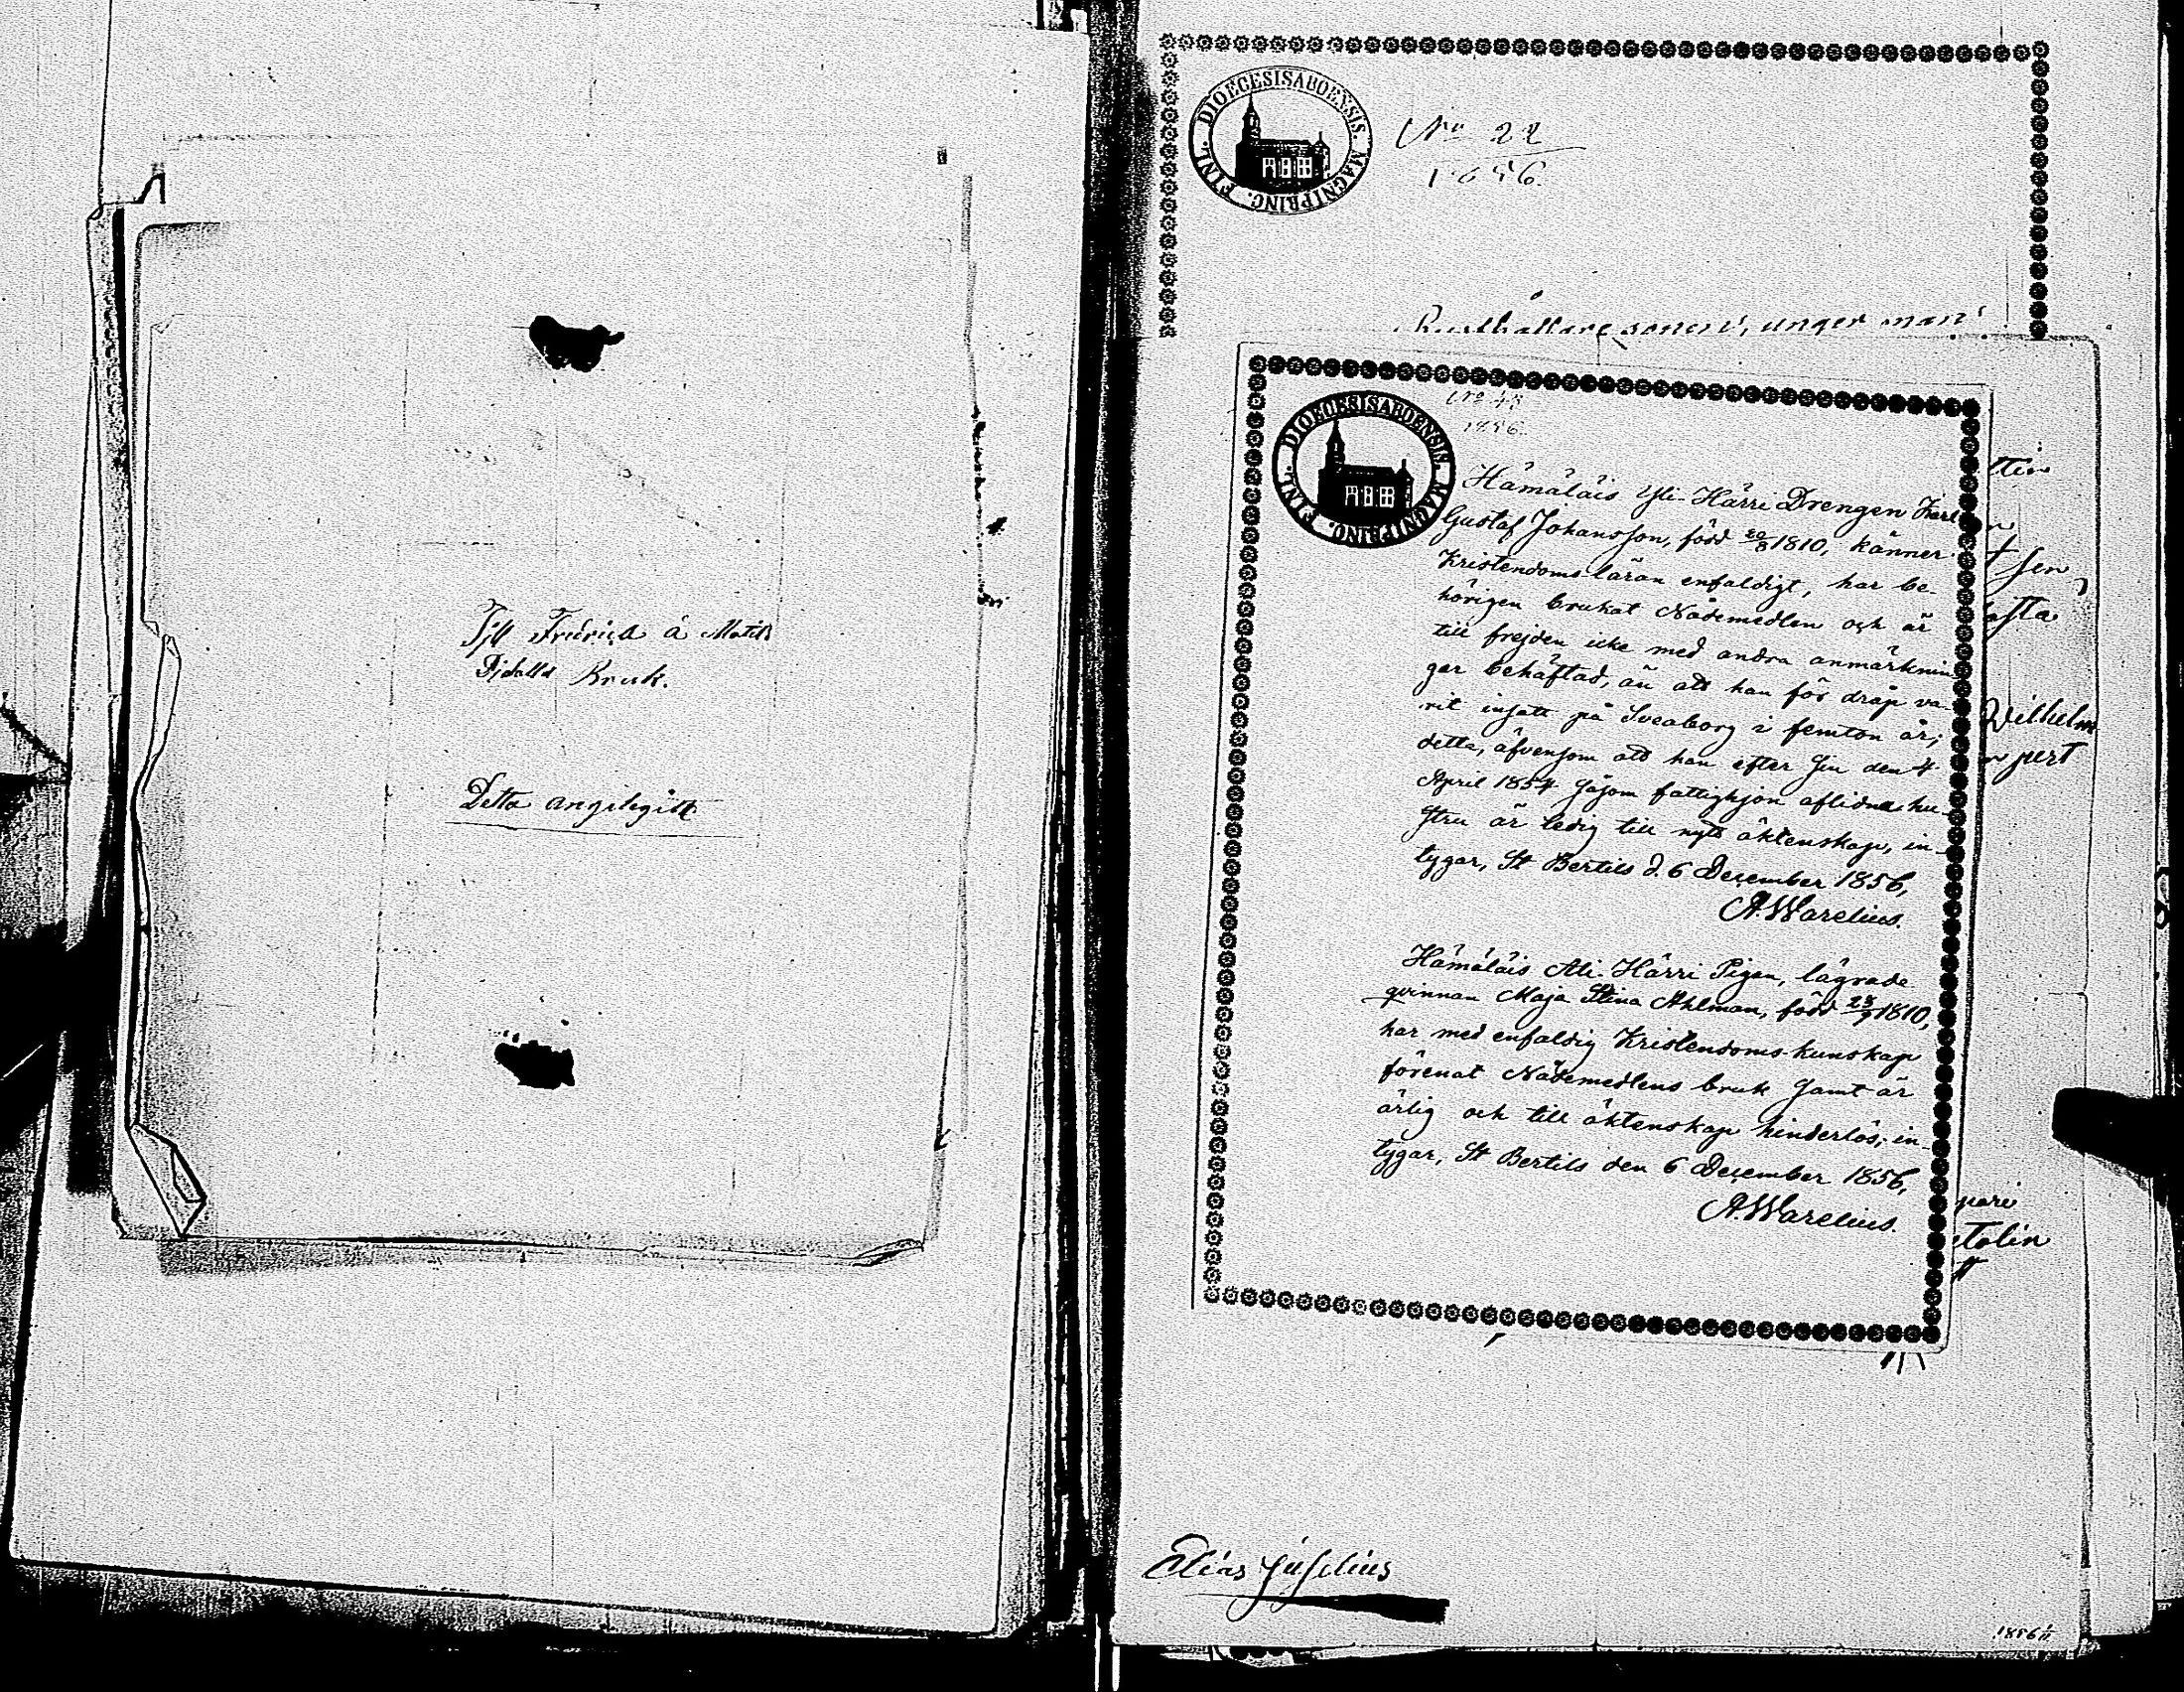 Till
á
Bruk.
Detta angelägit
DIOECESIS ABOENSIS. MAGNI PRINC. FINL.
No 22
1856.
Rusthållare sonen, unge man
No 43
1856.
DIOECESIS ABOENSIS. MAGNI PRINC. FINL.
Hämäläis Yli-Härri Drengen Karl
Gustaf Johansson, född 20/8 1810, känner
Kristendoms läran enfaldigt, har be-
hörigen brukat Nådemedlen och är
till frejden icke med andra anmärknin
gar behäftad, än att han för dråp va-
rit insatt på Sveaborg i femton år;
detta, äfvensom att han efter sin den 4
April 1854 såsom fattighjon aflidna hu-
stru är ledig till nytt äktenskap, in-
tygar, St Bertils d. 6 December 1856,
A. Warelius.
Hämäläis Ali-Härri Pigan, lägrade
qvinnan Maja Stina Ahlman, född 28/9 1810,
har med enfaldig Kristendoms kunskap
förenat Nådemedlens bruk samt är
ärlig och till äktenskap hinderlös; in-
tygar, St Bertils den 6 December 1856,
A. Warelius.
ttin
sen
Wilhelm
pari
Elias
1856